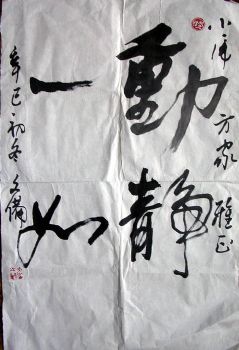 小虎方家雅正
動静
一如
辛巳初冬